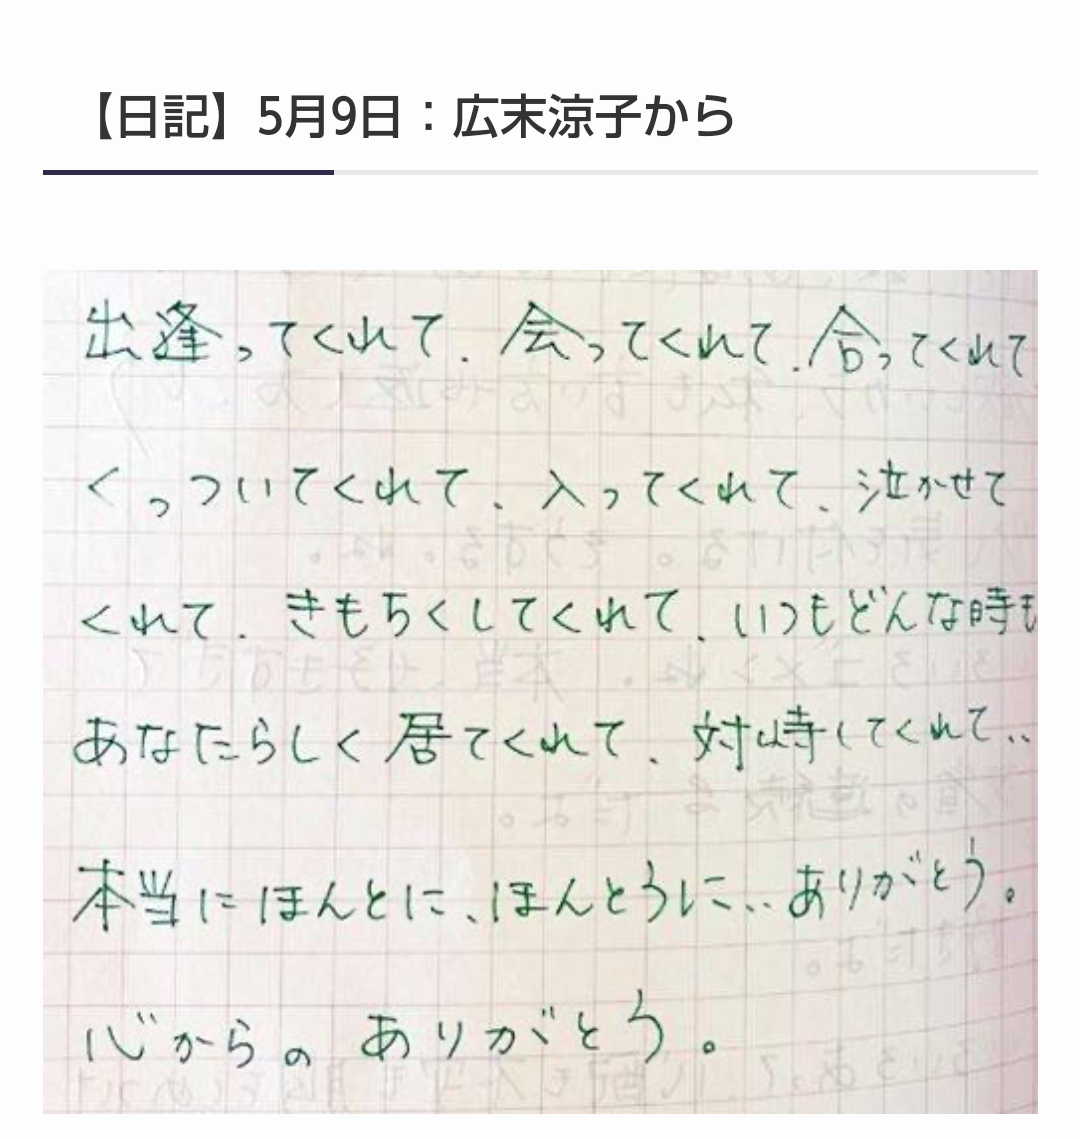 【日記】5月9日：広末涼子から
出逢ってくれて、会ってくれて、合ってくれて
くっついてくれて、入ってくれて、泣かせて
くれて、きもちくしてくれて、いつもどんな時も
あなたらしく居てくれて、対峙してくれて‥
本当にほんとに、ほんとうに‥ありがとう。
心からの ありがとう。